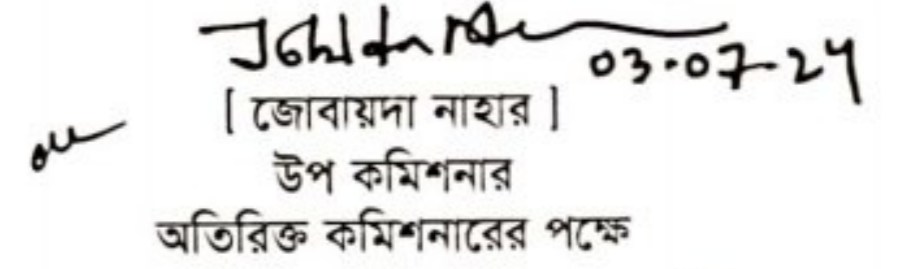 03-07-24
[ জোবায়দা নাহার ]
উপ কমিশনার
অতিরিক্ত কমিশনারের পক্ষে